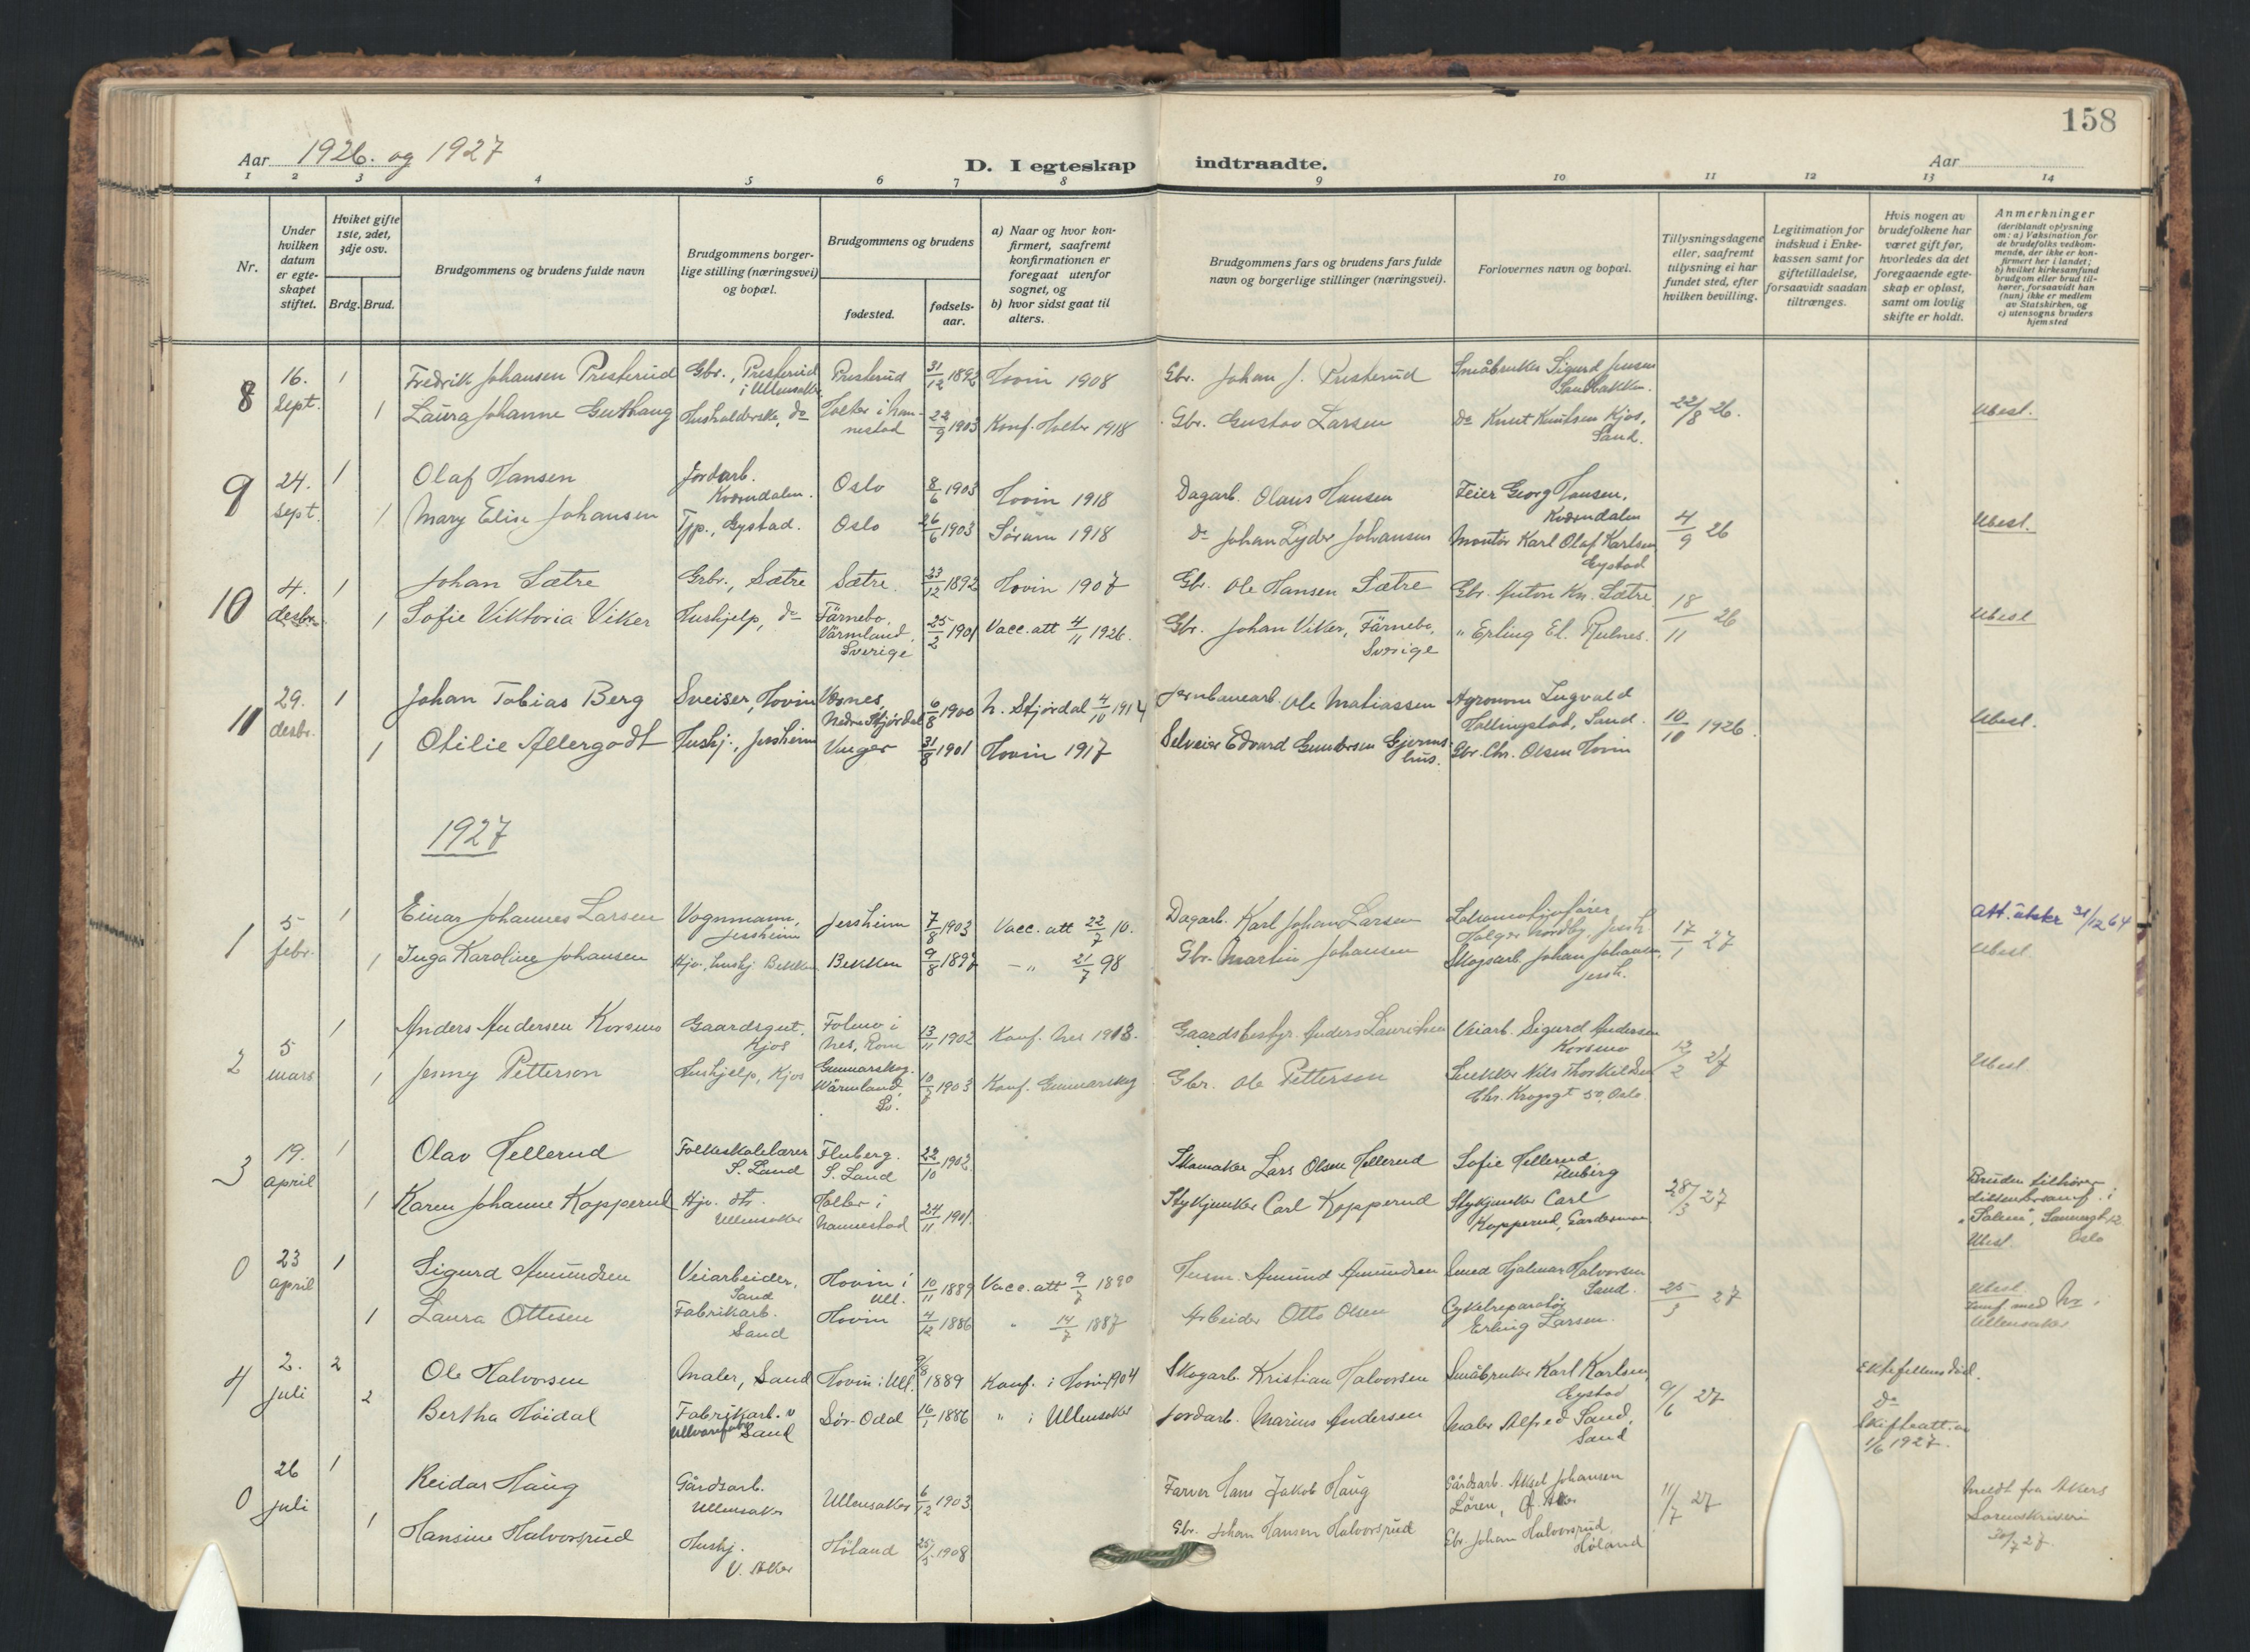 158
Aar 1926. og 1927
D. I egteskap indtraadte.
Aar
1 2 3 4 5 6 7 8 9 10 11 12 13 14
Nr.
Under hvilken datum er egte-skapet stiftet.
Hviket gifte 1ste, 2det, 3dje osv.
Brdg. Brud.
Brudgommens og brudens fulde navn
Brudgommens borger-lige stilling (næringsvei) og bopæl.
Brudgommens og brudens
fødested.
fødsels-aar.
a) Naar og hvor kon-firmert, saafremt konfirmationen er foregaat utenfor sognet, og
b) hvor sidst gaat til alters.
Brudgommens fars og brudens fars fulde navn og borgerlige stillinger (næringsvei).
Forlovernes navn og bopæl.
Tillysningsdagene eller, saafremt tillysning ei har fundet sted, efter hvilken bevilling.
Legitimation for indskud i Enke-kassen samt for giftetilladelse, forsaavidt saadan tiltrænges.
Hvis nogen av brudefolkene har været gift før, hvorledes da det foregaaende egte-skap er opløst, samt om lovlig skifte er holdt.
Anmerkninger (deriblandt oplysning om: a) Vaksination for de brudefolks vedkom-mende, der ikke er kon-firmert her i landet; b) hvilket kirkesamfund brudgom eller brud til-hører, forsaavidt han (hun) ikke er medlem av Statskirken, og c) utensogns bruders hjemsted
8 16. Sept. 1 Fredrik Johansen Presterud Gbr., Presterud i Ullensaker Presterud 31/12 1892 Hovin 1908 Gbr. Johan J. Presterud Småbruker Sigurd Jensen Sandbakken.
1 Laura Johanne Guthaug Husholderske, do Holter i Nannestad 22/9 1903 Konf. Holter 1918 Gbr. Gustav Larsen do Knut Knutsen Kjos, Sand. 22/8 26. Ubesl.
9 24. Sept. 1 Olaf Hansen Jordarb. Kverndalen. Oslo 8/6 1903 Hovin 1918 Dagarb. Olaus Hansen Feier Georg Hansen, Kverndalen
1 Mary Elise Johansen Tjp., Gystad. Oslo 26/6 1903 Sørum 1918 do Johan Lyder Johansen Montør Karl Olaf Karlsen Gystad 4/9 26 Ubesl.
10 4. desbr. 1 Johan Sætre Gbr., Sætre Sætre 23/12 1892 Hovin 1907 Gbr. Ole Hansen Sætre Gbr. Anton Kr. Sætre
1 Sofie Viktoria Viker Hushjelp, do Färnebo, Värmland, Sverige 25/2 1901 Vacc. att 4/11 1926. Gbr. Johan Viker, Färnebo, Sverige " Erling El. Rulnes. 18/11 26 Ubesl
11 29. desbr. 1 Johan Tobias Berg Sveiser, Hovin Værnes, Nedre Stjørdal 6/8 1900 N. Stjørdal 4/10 1914 Jernbanearb. Ole Matiassen Agronom Ingvald Hallingstad, Sand.
1 Otilie Allergodt Hushj., Jessheim Vinger 31/8 1901 Hovin 1917 Selveier Edvard Gundersen Gjermshus. Gbr. Chr. Olsen Hovin 10/10 1926. Ubesl.
1927
1 5 febr. 1 Einar Johannes Larsen Vognmann, Jessheim Jessheim 7/8 1903 Vacc. att 22/7 10. Dagarb. Karl Johan Larsen Lokomotivfører Holger Nordby, Jessh. Att. utskr 31/12 64
1 Inga Karoline Johansen Hjv. hushj Bekken Bekken 9/8 1897 — " 21/7 98 Gbr. Martin Johansen Skogsarb. Johan Johansen, Jessh. 17/1 27 Ubesl.
2 5 mars 1 Anders Andersen Korsmo Gaardsgut. Kjos Folmo i Nes, Rom 13/11 1902 Konf. Nes 1918. Gaardsbestyr. Anders Lauritsen Veiarb. Sigurd Andersen Korsmo
1 Jenny Petterson Hushjelp, Kjos Gunnarskog. Wärmland, Sv. 10/7 1903 Konf. Gunnarskog Gbr. Ole Petterson Snekker Nils Thorkildsen Chr. Kroggt 50, Oslo. 12/2 27 Ubesl
3 19. april 1 Olav Hellerud Folkeskolelærer S. Land Fluberg. S. Land 22/10 1902 Skomaker Lars Olsen Hellerud Sofie Hellerud, Fluberg
1 Karen Johanne Kopperud Hjv. dtr. Ullensaker Holter i Nannestad 24/11 1901. Stykjunker Carl Kopperud Stykjunker Carl Kopperud, Gardermoen 28/3 27 Bruden tilhører dissentersamf. i "Salem", Oslo Ubesl.
0 23 april 1 Sigurd Amundsen Veiarbeider, Sand Hovin i Ull. 10/11 1889 Vacc. att 9/7 1890 Husm. Amund Amundsen Smed Hjalmar Halvorsen Sand.
1 Laura Ottesen Fabrikarb. Sand Hovin 4/12 1886 " 14/7 1887 Arbeider Otto Olsen Cykelreparatør Erling Larsen. 25/3 27 Ubesl. Ullensaker
4 2. juli 2 Ole Halvorsen Maler, Sand Hovin i Ull. 9/8 1889 Konf. i Hovin 1904 Skogarb. Kristian Halvorsen Småbruker Karl Karlsen, Gystad Ektefellens død.
2 Bertha Höidal Fabrikarb. v Sand Sør-Odal 16/1 1886 " i Ullensaker Jordarb. Marius Andersen Maler Alfred Sand, Sand 9/6 27 do Skifteatt. av 1/6 1927.
0 26 juli 1 Reidar Haug Gårdsarb. Ullensaker Ullensaker 6/12 1903 Farver Hans Jakob Haug Gårdsarb. Aksel Johansen Løren, Ø. Aker
1 Hansine Halvorsrud Hushj. V. Aker Høland 25/5 1908 Gbr. Johan Hansen Halvorsrud Gbr Johan Halvorsrud, Høland 11/7 27 Meldt fra Akers Sorenskriveri 30/7 27.